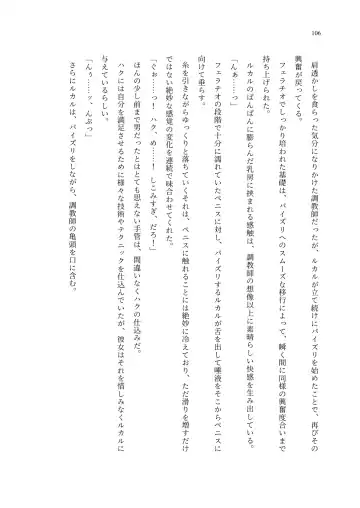 106
肩透かしを食らった気分になりかけた調教師だったが、ルカルが立て続けにパイズリを始めたことで、再びその
興奮が戻ってくる。
フェラチオでしっかり培われた基礎は、パイズリへのスムーズな移行によって、瞬く間に同様の興奮度合いまで
持ち上げられた。
「んぁ……っ」
ルカルのぱんぱんに膨らんだ乳房に挟まれる感触は、調教師の想像以上に素晴らしい快感を生み出している。
フェラチオの段階で十分に濡れていたペニスに対し、パイズリするルカルが舌を出して唾液をそこからペニスに
向けて垂らす。
糸を引きながらゆっくりと落ちていくそれは、ペニスに触れることには絶妙に冷えており、ただ滑りを増すだけ
ではない絶妙な感覚の変化を連続で味合わせてくれた。
「ぐぉ……っ！　ハク、め……！　しこみすぎ、だろ！」
ほんの少し前まで男だったとはとても思えない手管は、間違いなくハクの仕込みだ。
ハクには自分を満足させるために様々な技術やテクニックを仕込んでいたが、彼女はそれを惜しみなくルカルに
与えているらしい。
「んぅ……ッ、んぷっ」
さらにルカルは、パイズリをしながら、調教師の亀頭を口に含む。